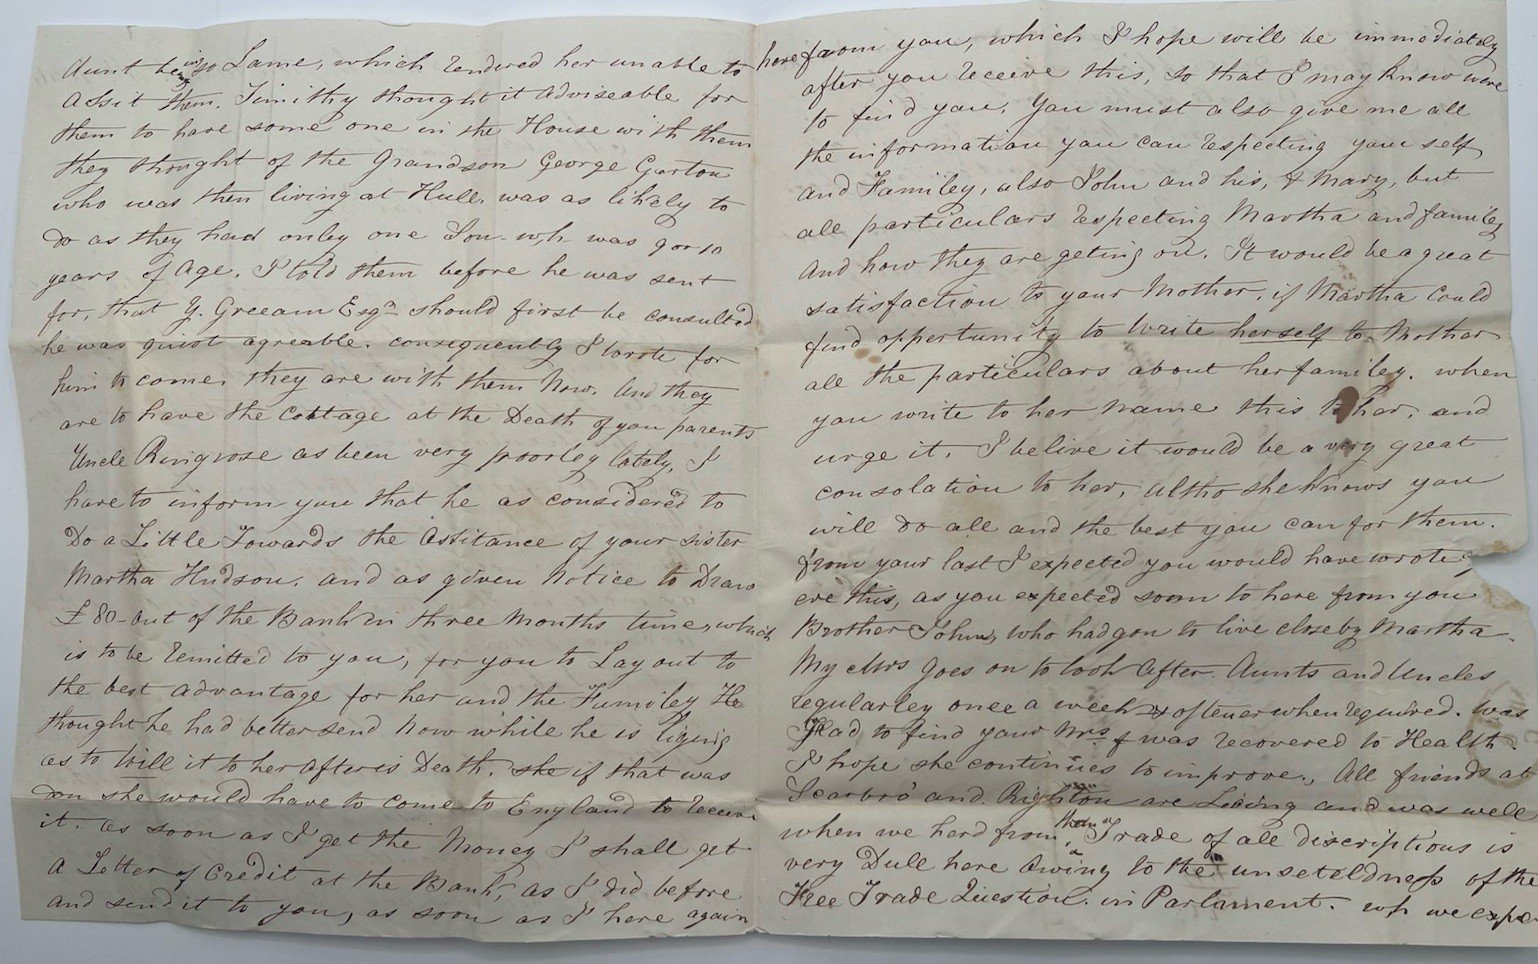 Aunt being so Lame, which rendered her unable to
assit them. Timithy thought it adviseable for
them to have some one in the House with them
they thought of the Grandson George Garton
who was then living at Hull. was as likely to
do as they had onley one Son. wh was 9 or 10
years of age. I told them before he was sent
for, that Y. Greeam Esqr should first be consulted
he was quiot agreable. consequently I wrote for
him to come, they are with them Now. And they
are to have the Cottage at the Death of you parents
Uncle Ringrose as been very poorley lately, I
have to inform you that he as considered to
Do a Little Towards the assitance of your sister
Martha Hudson. and as given Notice to Draw
£80 - out of the Bank in three Months time, which
is to be remitted to you, for you to Lay out to
the best advantage for her and the Familey He
thought he had better send Now while he is liging
as to Will it to her after is Death. she if that was
don she would have to come to England to receive
it. as soon as I get the Money I shall get
a Letter of Credit at the Bank, as I did before
and send it to you, as soon as I here again
here from you, which I hope will be immediately
after you receive this, so that I may Know were
to find you. You must also give me all
the information you can respecting your self
and Familey, also John and his, & Mary, but
all particulars respecting Martha and familey
And how they are geting on. It would be a great
satisfaction to your Mother, if Martha Could
find oppertunity to Write herself to Mother
all the particulars about her familey. when
you write to her name this to her, and
urge it. I belive it would be a very great
consolation to her, altho she knows you
will do all and the best you can for them.
from your last I expected you would have wrote
ere this, as you expected soon to here from you
Brother John, who had gon to live close by Martha
My Mrs goes on to look after Aunts and Uncles
regularley once a week & oftener when required. was
Glad to find your Mrs was recovered to Health
I hope she continues to improve., All friends at
Scarbro' and Righton are Living and was well
when we herd from them. Trade of all discriptions is
very Dull here owing to the unseteldness of the
Free Trade Question. in Parlament. wh we expe